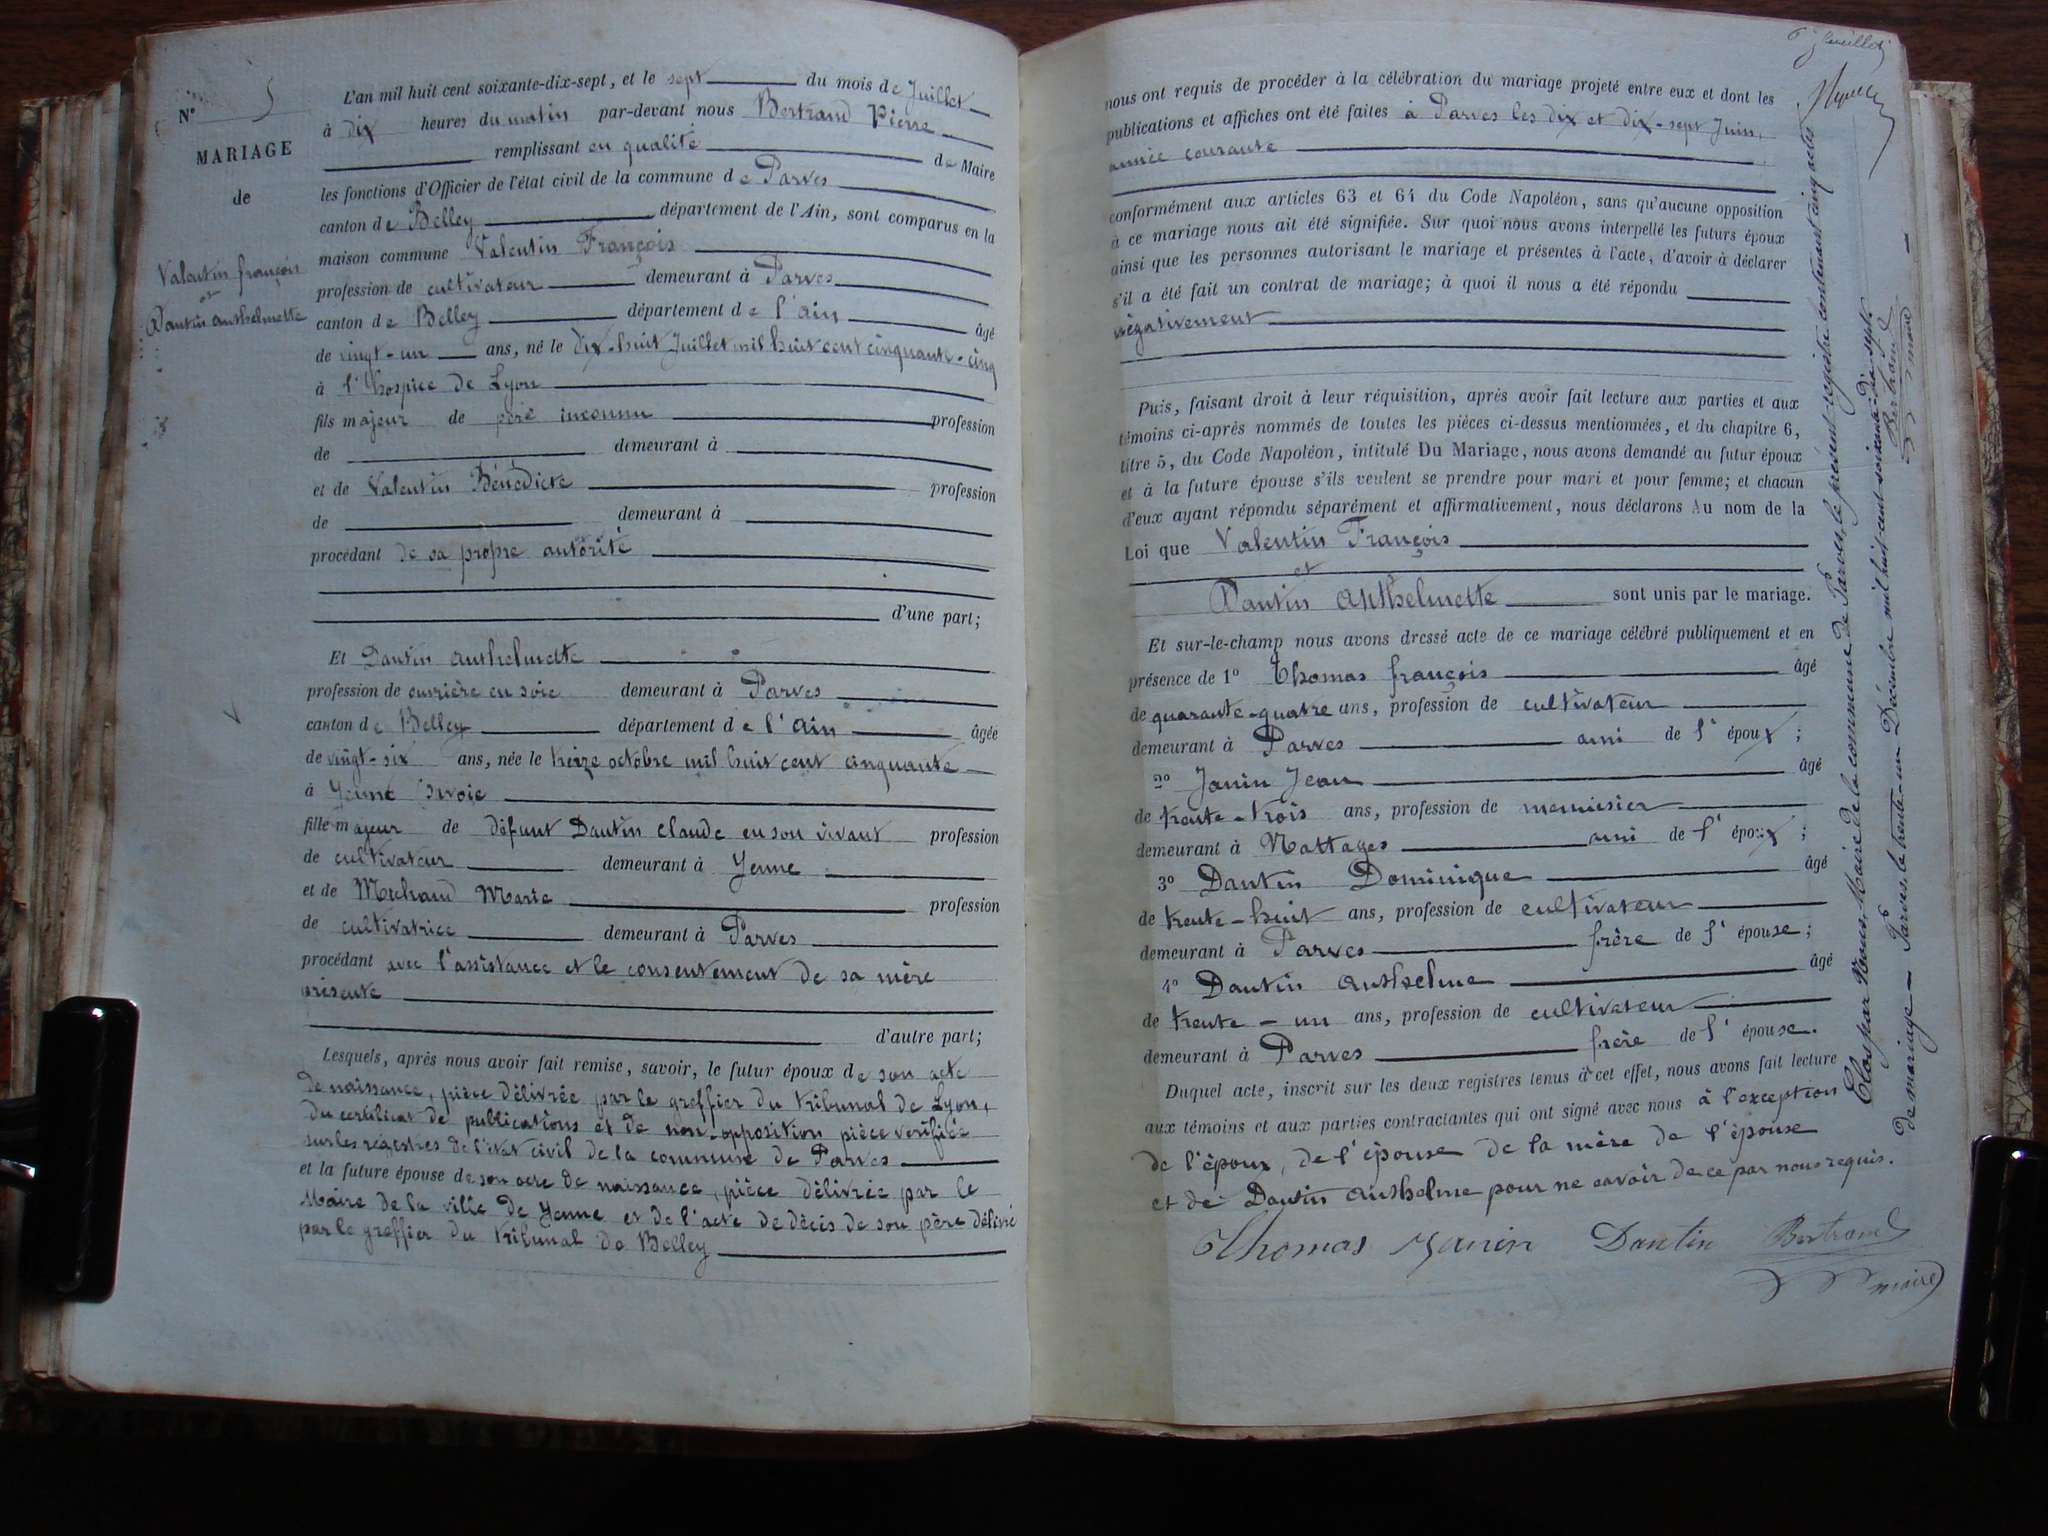 N° 5
MARIAGE
de
Valentin françois
et
Dantin anthelmette
L'an mil huit cent soixante-dix-sept, et le sept du mois de Juillet
à dix heures du matin par-devant nous Bertrand Pierre
remplissant en qualité de Maire
les fonctions d'Officier de l'état civil de la commune de Parves
canton de Belley département de l'Ain, sont comparus en la
maison commune Valentin François
profession de cultivateur demeurant à Parves
canton de Belley département de l'ain âgé
de vingt-un ans, né le dix-huit Juillet mil huit cent cinquante-cinq
à l'hospice de Lyon
fils majeur de père inconnu profession
de demeurant à
et de Valentin Bénédicte profession
de demeurant à
procédant de sa propre autorité
d'une part;
Et Dantin anthelmette
profession de ouvrière en soie demeurant à Parves
canton de Belley département de l'ain âgée
de vingt-six ans, née le treize octobre mil huit cent cinquante
à Yenne Savoie
fille majeur de défunt Dantin claude en son vivant profession
de cultivateur demeurant à Yenne
et de Michaud Marie profession
de cultivatrice demeurant à Parves
procédant avec l'assistance et le consentement de sa mère
présente
d'autre part;
Lesquels, après nous avoir fait remise, savoir, le futur époux de son acte
de naissance, pièce délivrée par le greffier du tribunal de Lyon,
du certificat de publications et de non-opposition pièce verifiée
sur les régistres de l'état civil de la commune de Parves
et la future épouse de son acte de naissance, pièce délivrée par le
Maire de la ville de Yenne et de l'acte de décès de son père délivré
par le greffier du tribunal de Belley
6e feuillet
nous ont requis de procéder à la célébration du mariage projeté entre eux et dont les
publications et affiches ont été faites à Parves les dix et dix-sept Juin,
année courante
conformément aux articles 63 et 64 du Code Napoléon, sans qu'aucune opposition
à ce mariage nous ait été signifiée. Sur quoi nous avons interpellé les futurs époux
ainsi que les personnes autorisant le mariage et présentes à l'acte, d'avoir à déclarer
s'il a été fait un contrat de mariage; à quoi il nous a été répondu
négativement
Puis, faisant droit à leur réquisition, après avoir fait lecture aux parties et aux
témoins ci-après nommés de toutes les pièces ci-dessus mentionnées, et du chapitre 6,
titre 5, du Code Napoléon, intitulé Du Mariage, nous avons demandé au futur époux
et à la future épouse s'ils veulent se prendre pour mari et pour femme; et chacun
d'eux ayant répondu séparément et affirmativement, nous déclarons Au nom de la
Loi que Valentin François
et
Dantin anthelmette sont unis par le mariage.
Et sur-le-champ nous avons dressé acte de ce mariage célébré publiquement et en
présence de 1° Thomas françois âgé
de quarante-quatre ans, profession de cultivateur
demeurant à Parves ami de l'époux;
2° Janin Jean âgé
de trente-trois ans, profession de menuisier
demeurant à Nattages ami de l'époux;
3° Dantin Dominique âgé
de trente-huit ans, profession de cultivateur
demeurant à Parves frère de l'épouse;
4° Dantin anthelme âgé
de trente-un ans, profession de cultivateur
demeurant à Parves frère de l'épouse.
Duquel acte, inscrit sur les deux registres tenus à cet effet, nous avons fait lecture
aux témoins et aux parties contractantes qui ont signé avec nous à l'exception
de l'époux, de l'épouse de la mère de l'épouse
et de Dantin anthelme pour ne savoir de ce par nous requis.
Thomas Janin Dantin Bertrand
maire
Clos par Nous, Maire de la commune de Parves, le présent registre contenant cinq actes
de mariage - Parves, le trente-un Décembre mil huit cent soixante-dix-sept.
Bertrand
maire